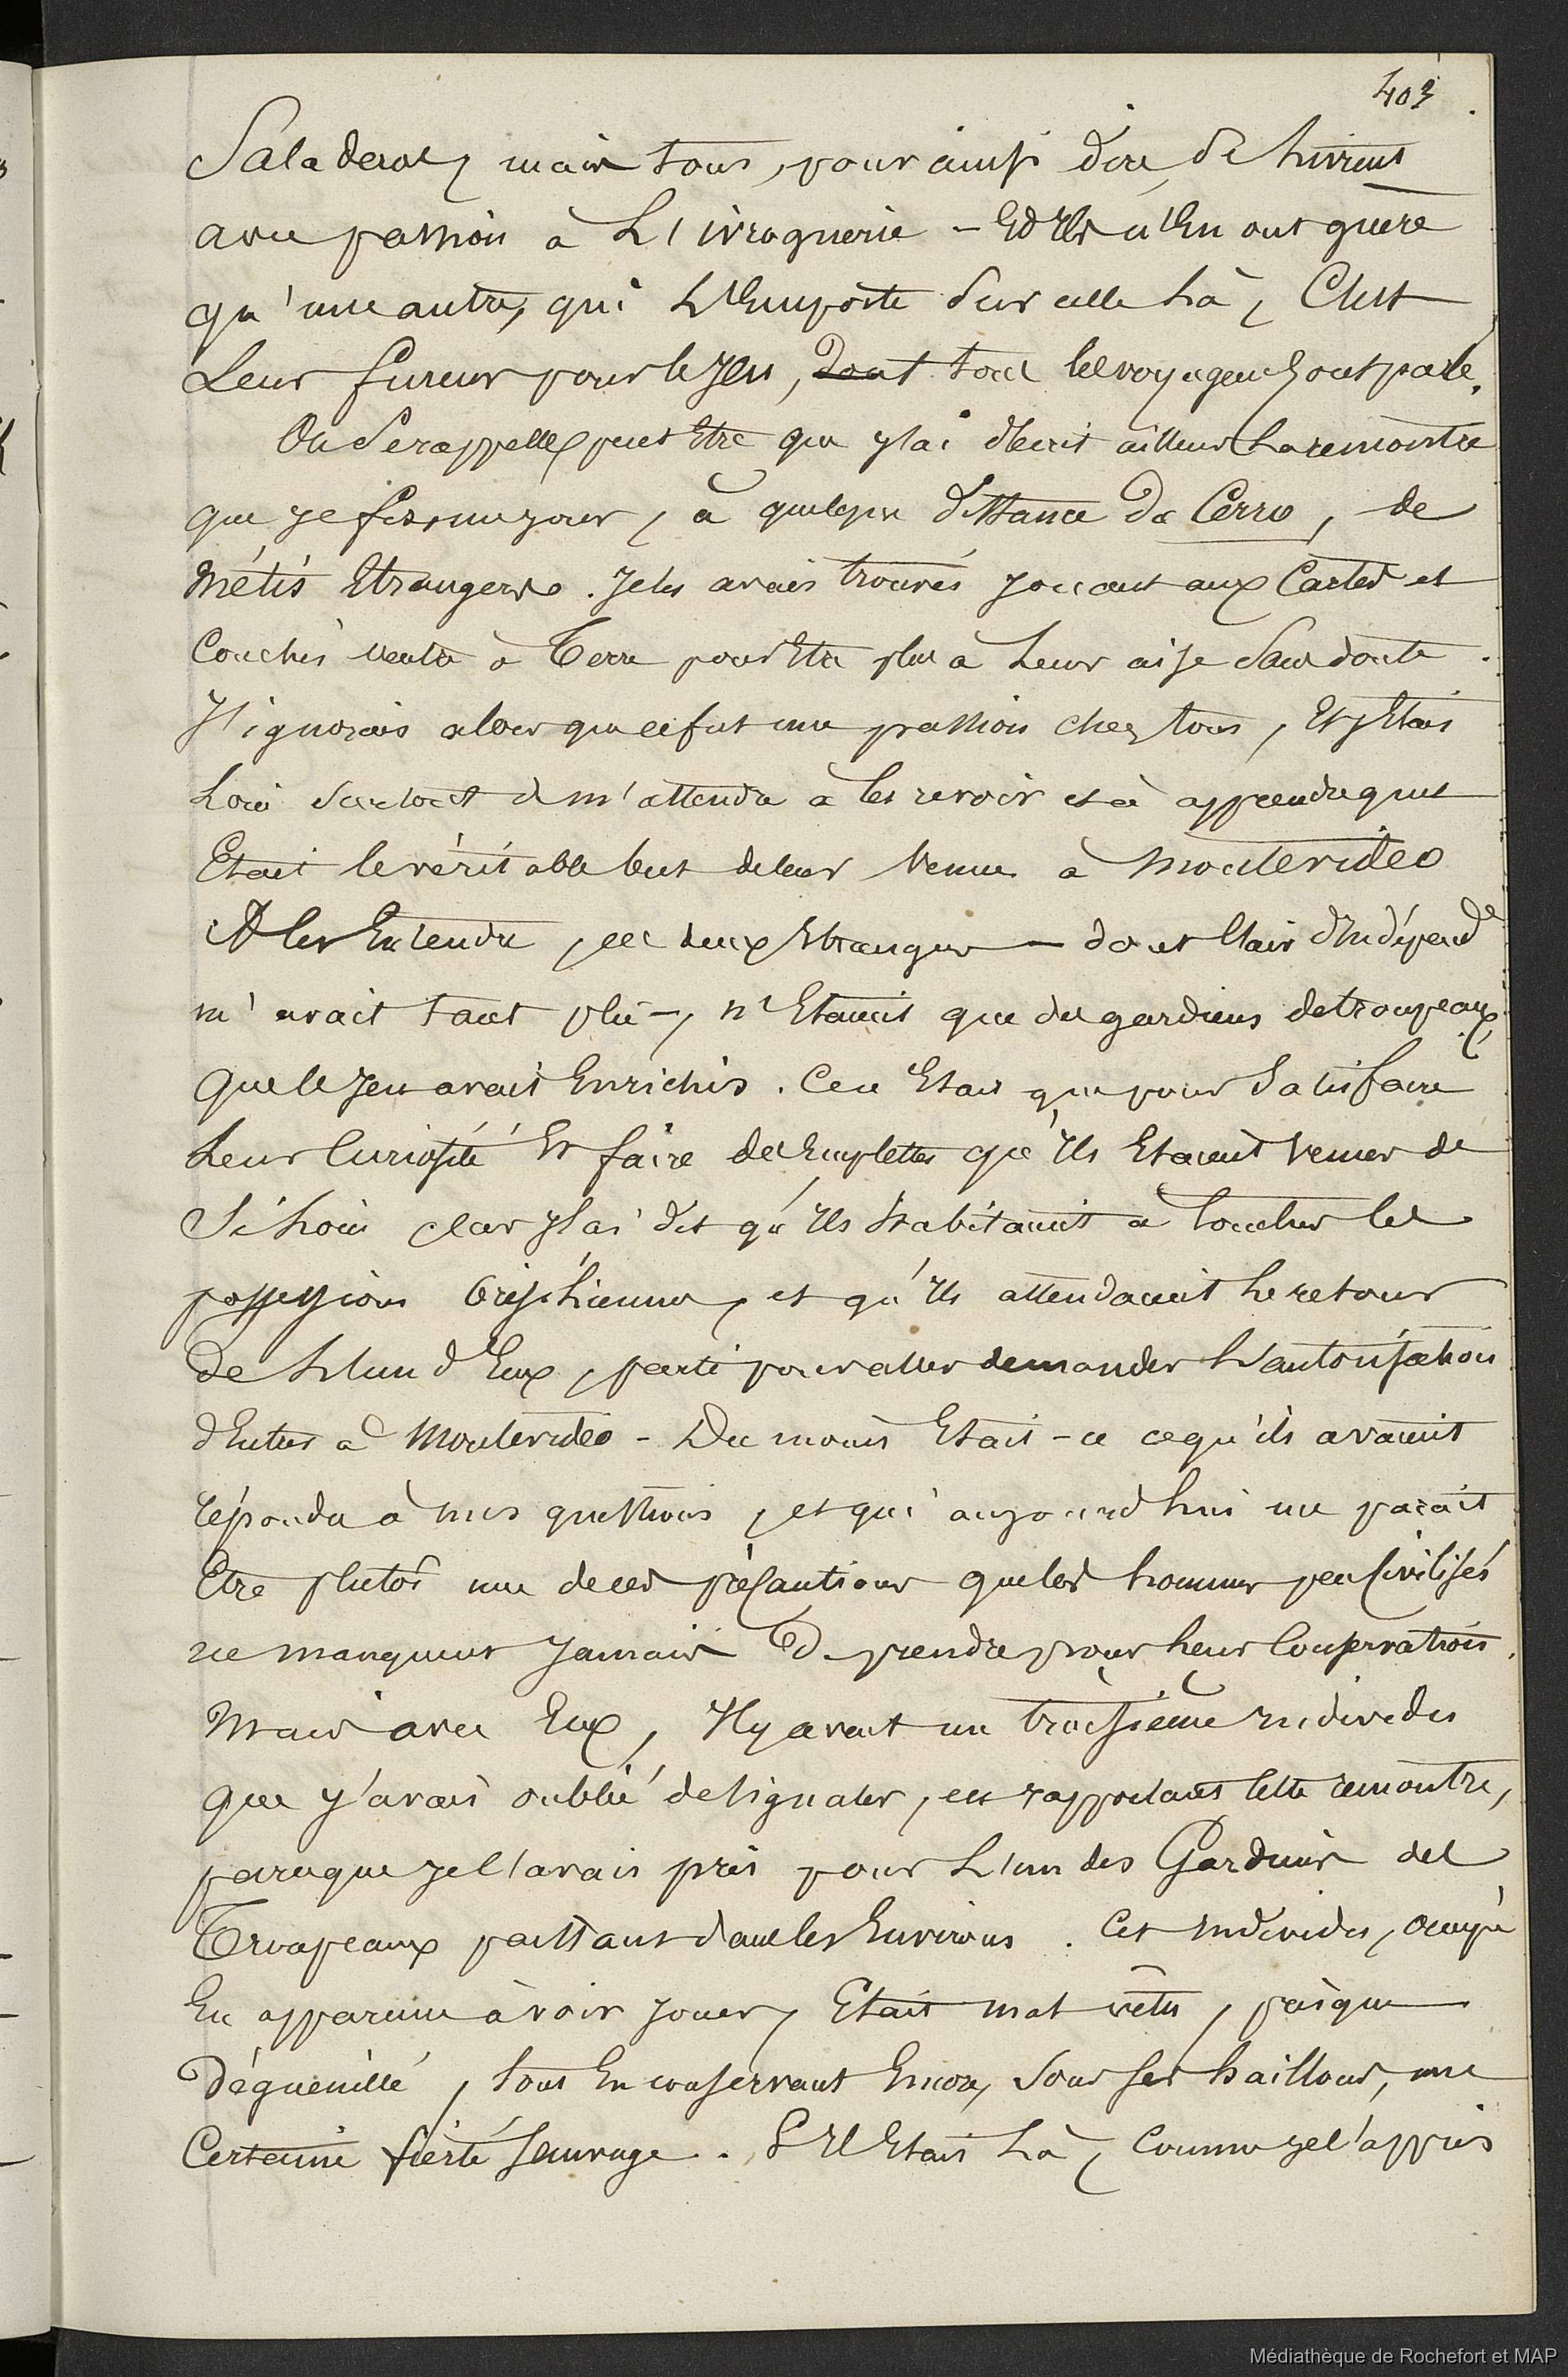 403
Saladeros, mais tous, pour ainsi dire, se livrent
avec passion à L'ivrognerie – Et Ils n'En ont guère
qu'une autre, qui L'Emporte sur celle là, C'est
Leur fureur pour le Jeu, dont tous les voyageurs ont parlé.
On se rappelle peut Etre que j'ai décrit ailleurs La rencontre
que je fis, un jour, à quelque distance du Cerro, de
Métis Etrangers. Je les avais trouvés jouant aux Cartes et
Couchés ventre à Terre pour Etre plus à Leur aise Sans doute.
J'ignorais alors que ce fut une passion chez tous, Et j'Etais
Loin surtout de m'attendre à les revoir et à apprendre quel
Etait le véritable but de leur venue à Montevideo
A les Entendre, ces deux Etrangers – dont l'air d'Indépend.ce
m'avait tant plû –, n'Etaient que des gardiens de troupeaux
Que le Jeu avait Enrichis. Ce n'Etait que pour Satisfaire
Leur Curiosité Et faire des Emplettes qu'Ils Etaient venus de
Si Loin, car j'ai dit qu'Ils habitaient à toucher les
possessions brésiliennes, et qu'Ils attendaient le retour
De L'un d'Eux, parti pour aller demander L'autorisation
d'Entrer à Montevideo – Du moins Etait-ce ce qu'ils avaient
répondu à mes questions, et qui aujourd'hui me paraît
Etre plutôt une de ces précautions que les hommes peu Civilisés
ne manquent Jamais de prendre pour leur Conservation.
Mais avec Eux, Il y avait un troisième individu
que j'avais oublié de signaler, en rapportant cette rencontre,
parceque je l'avais pris pour L'un des Gardiens des
Troupeaux paissant dans les Environs. Cet individu, occupé
En apparence à voir jouer, Etait mal vêtu, presque
Déguenillé, tout En conservant Encore, sous ses haillons, une
Certaine fierté sauvage. Il Etait Là, Comme je l'appris
Médiathèque de Rochefort et MAP